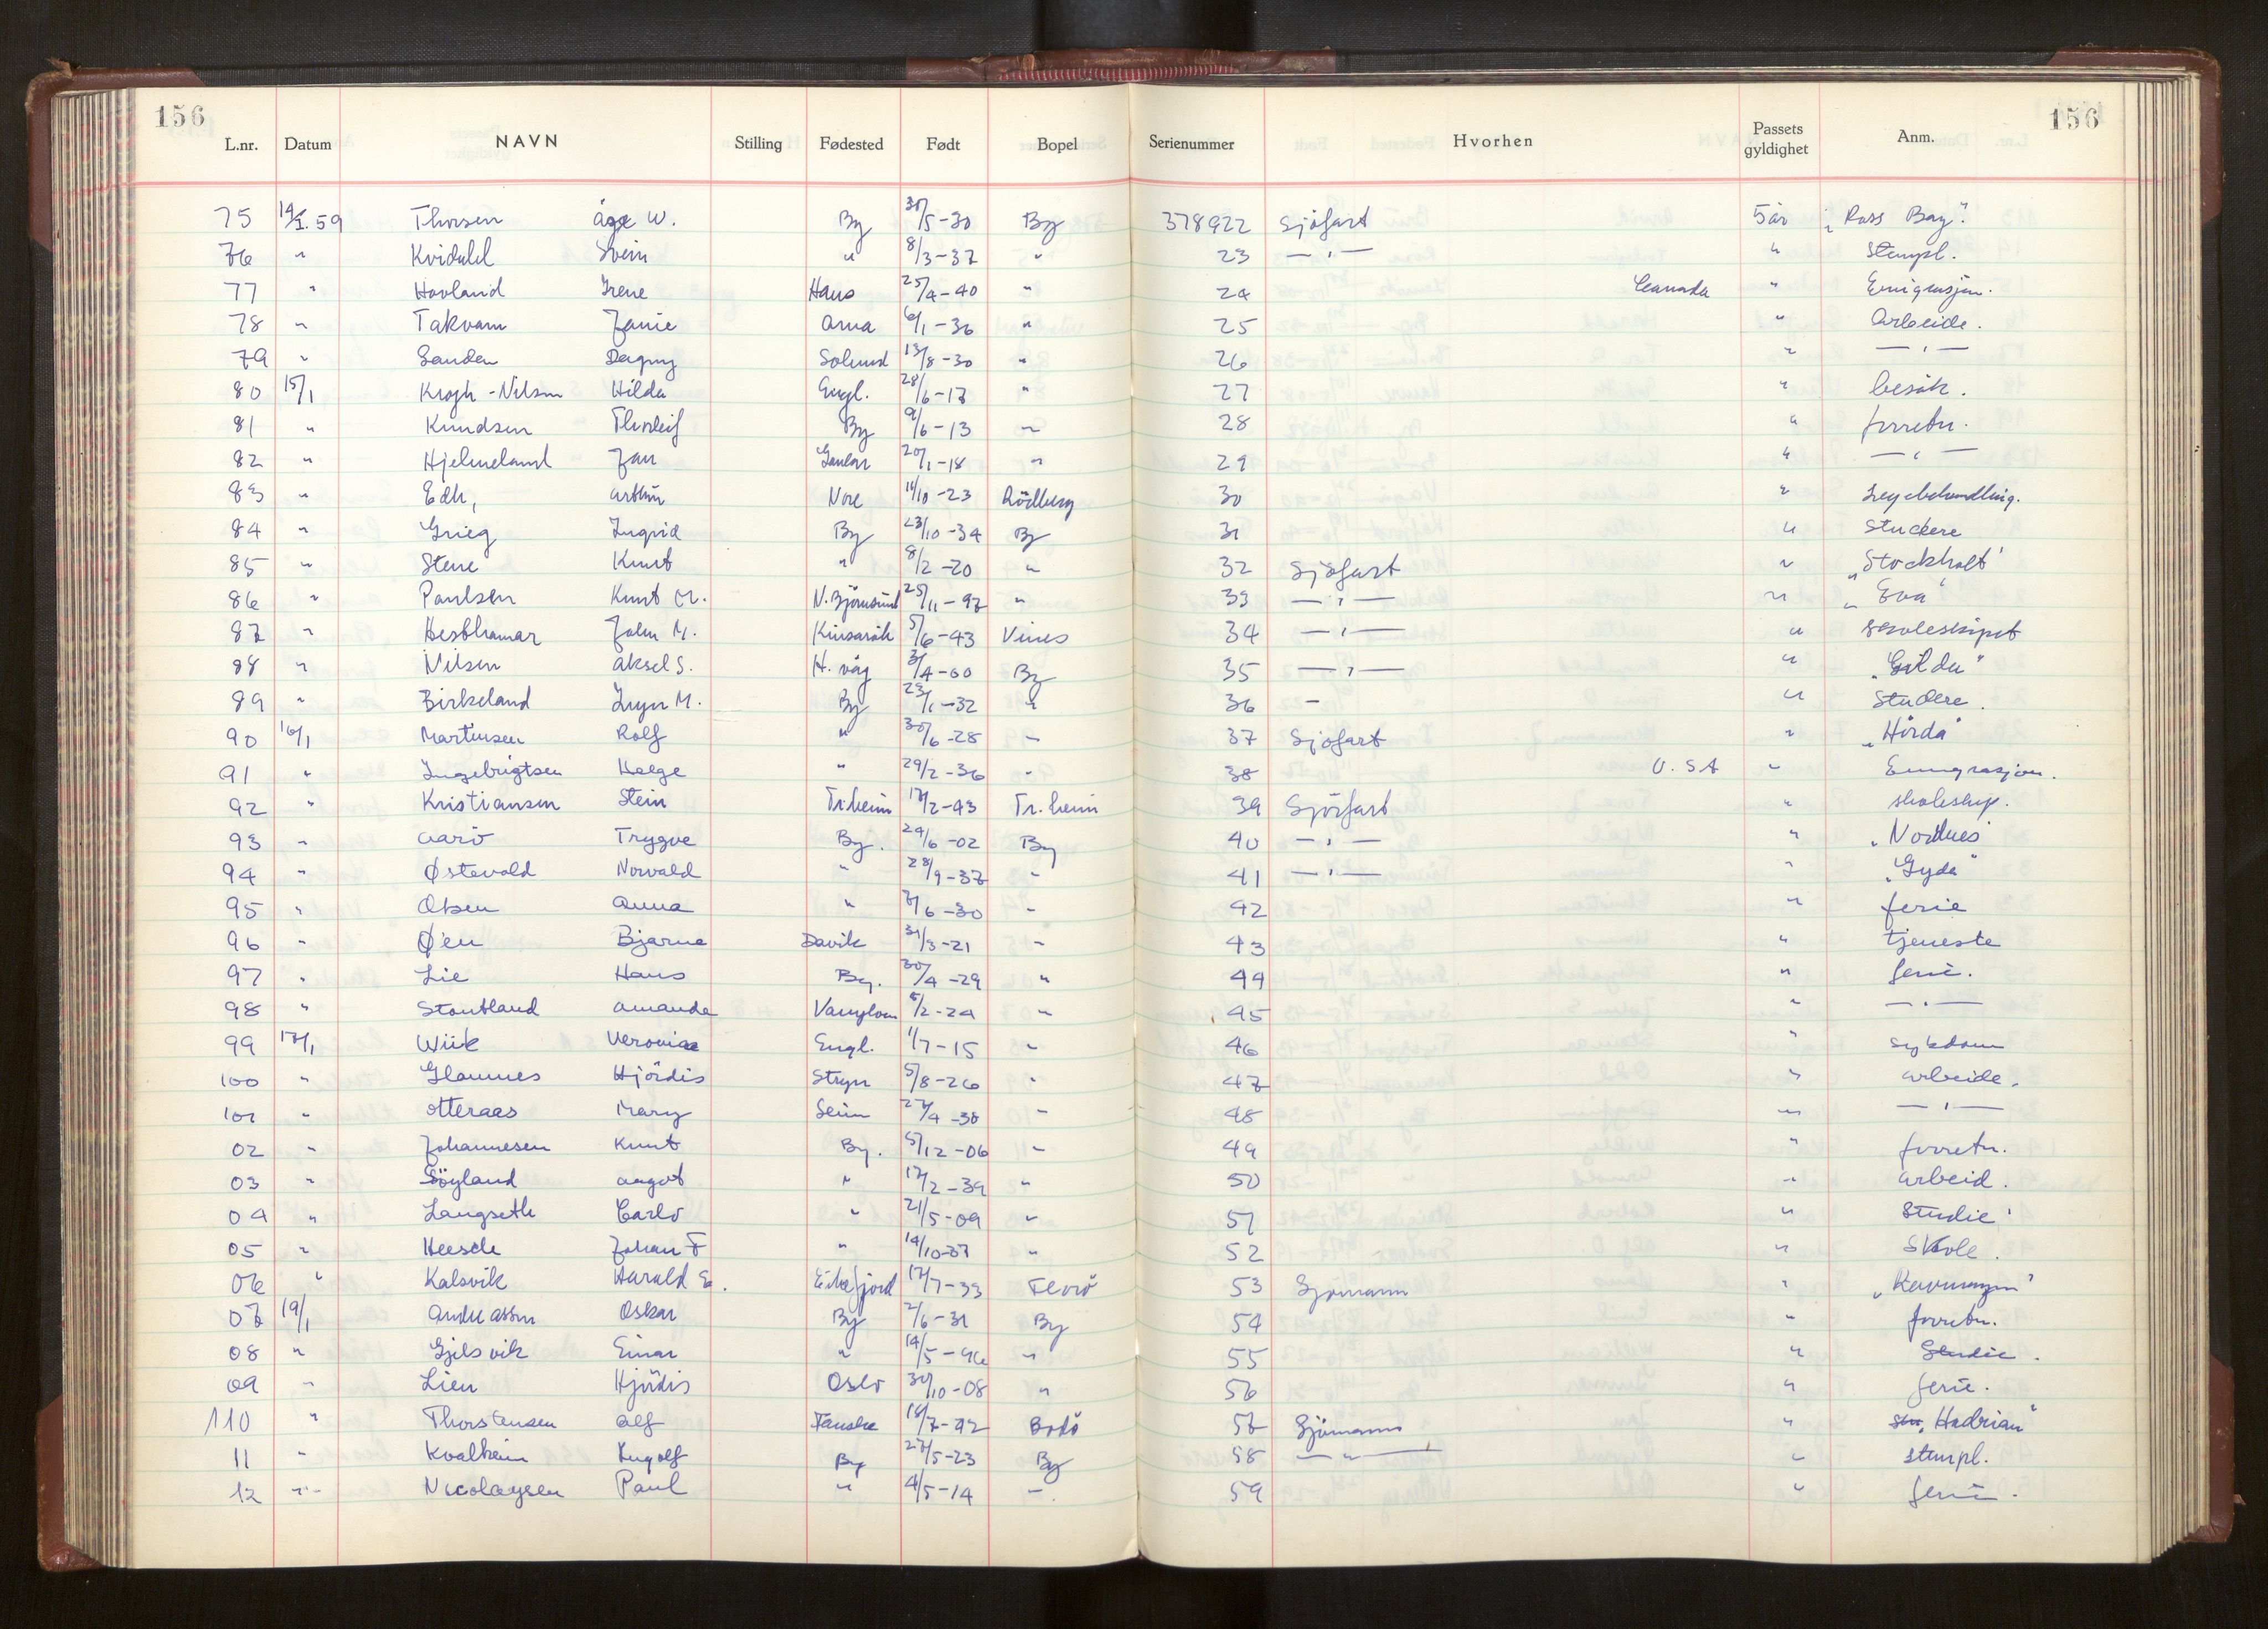 156 156
L.nr. Datum NAVN Stilling Fødested Født Bopel Serienummer Hvorhen Passets gyldighet Anm.
75 14/I.59 Thorsen Åge W. By 30/5-30 By 378922 Sjöfart 5 år "Ross Bay".
76 " Kvidahl Svein " 8/3-37 " 23 —"— " Stempl.
77 " Hovland Irene Haus 25/4-40 " 24 Canada " Emigrasjon.
78 " Takvam Janie Arna 6/1-36 " 25 " Arbeide.
79 " Sanden Dagny Solund 13/8-30 " 26 " —"—
80 15/1 Krogh-Nilsen Hilda Engl. 28/6-17 " 27 " besök.
81 " Knudsen Thorleif By 9/6-13 " 28 " forretn.
82 " Hjelmeland Jan Gaular 20/1-18 " 29 " —"—
83 " Edh, Arthur Nore 11/10-23 Rödberg 30 " Legebehandling.
84 " Grieg Ingrid By 23/10-34 By 31 " Studere
85 " Stene Knut " 8/2-20 " 32 Sjöfart " "Stockholt"
86 " Paulsen Knut M. N.Björnsund 25/11-97 " 33 —"— " "Eva"
87 " Hesthamar John M. Kinsarvik 5/6-43 Vines 34 —"— " skoleskipet
88 " Nilsen Aksel S. H. våg 3/4-00 By 35 —"— " "Gilda"
89 " Birkeland Inger M. By 23/1-32 " 36 — " Studere.
90 16/1 Martinsen Rolf " 30/6-28 " 37 Sjöfart " "Hörda"
91 " Ingebrigtsen Helge " 29/2-36 " 38 U.S.A " Emigrasjon.
92 " Kristiansen Stein Tr.heim 17/2-43 Tr.heim 39 Sjöfart " skoleskip.
93 " Aarö Trygve By. 24/6-02 By 40 —"— " "Nordnes"
94 " Østevold Norvald " 28/9-37 " 41 —"— " "Gyda"
95 " Olsen Anna " 7/6-30 " 42 " ferie
96 " Øen Bjarne Davik 31/3-21 " 43 " tjeneste
97 " Lie Hans By. 30/4-29 " 44 " ferie.
98 " Stoutland Amanda Vanylven 5/2-24 " 45 " —"—
99 17/1 Wiik Veronica Engl. 1/7-15 " 46 " sykdom
100 " Glomnes Hjördis Stryn 5/8-26 " 47 " arbeide.
101 " Otteraas Mary Seim 27/4-38 " 48 " —"—
02 " Johannesen Knut By. 5/12-06 " 49 " forretn.
03 " Söyland Aagot " 17/2-39 " 50 " arbeid.
04 " Langseth Carlo " 21/5-09 " 51 " Studie
05 " Heesch Johan F " 14/10-37 " 52 " Skole.
06 " Kalsvik Harald E. Eikefjord 17/7-33 Florö 53 Sjömann "
07 19/1 Andreassen Oskar By 2/6-31 By 54 " forretn.
08 " Gjelsvik Einar " 14/5-46 " 55 " Studie.
09 " Lien Hjördis Oslo 30/10-08 " 56 " ferie.
110 " Thorstensen Alf Fauske 18/7-42 Bodö 57 Sjömann " "Hadrian"
11 " Kvalheim Ingolf By 27/5-23 By 58 —"— " stempl.
12 " Nicolaysen Paul " 4/5-14 " 59 " ferie.